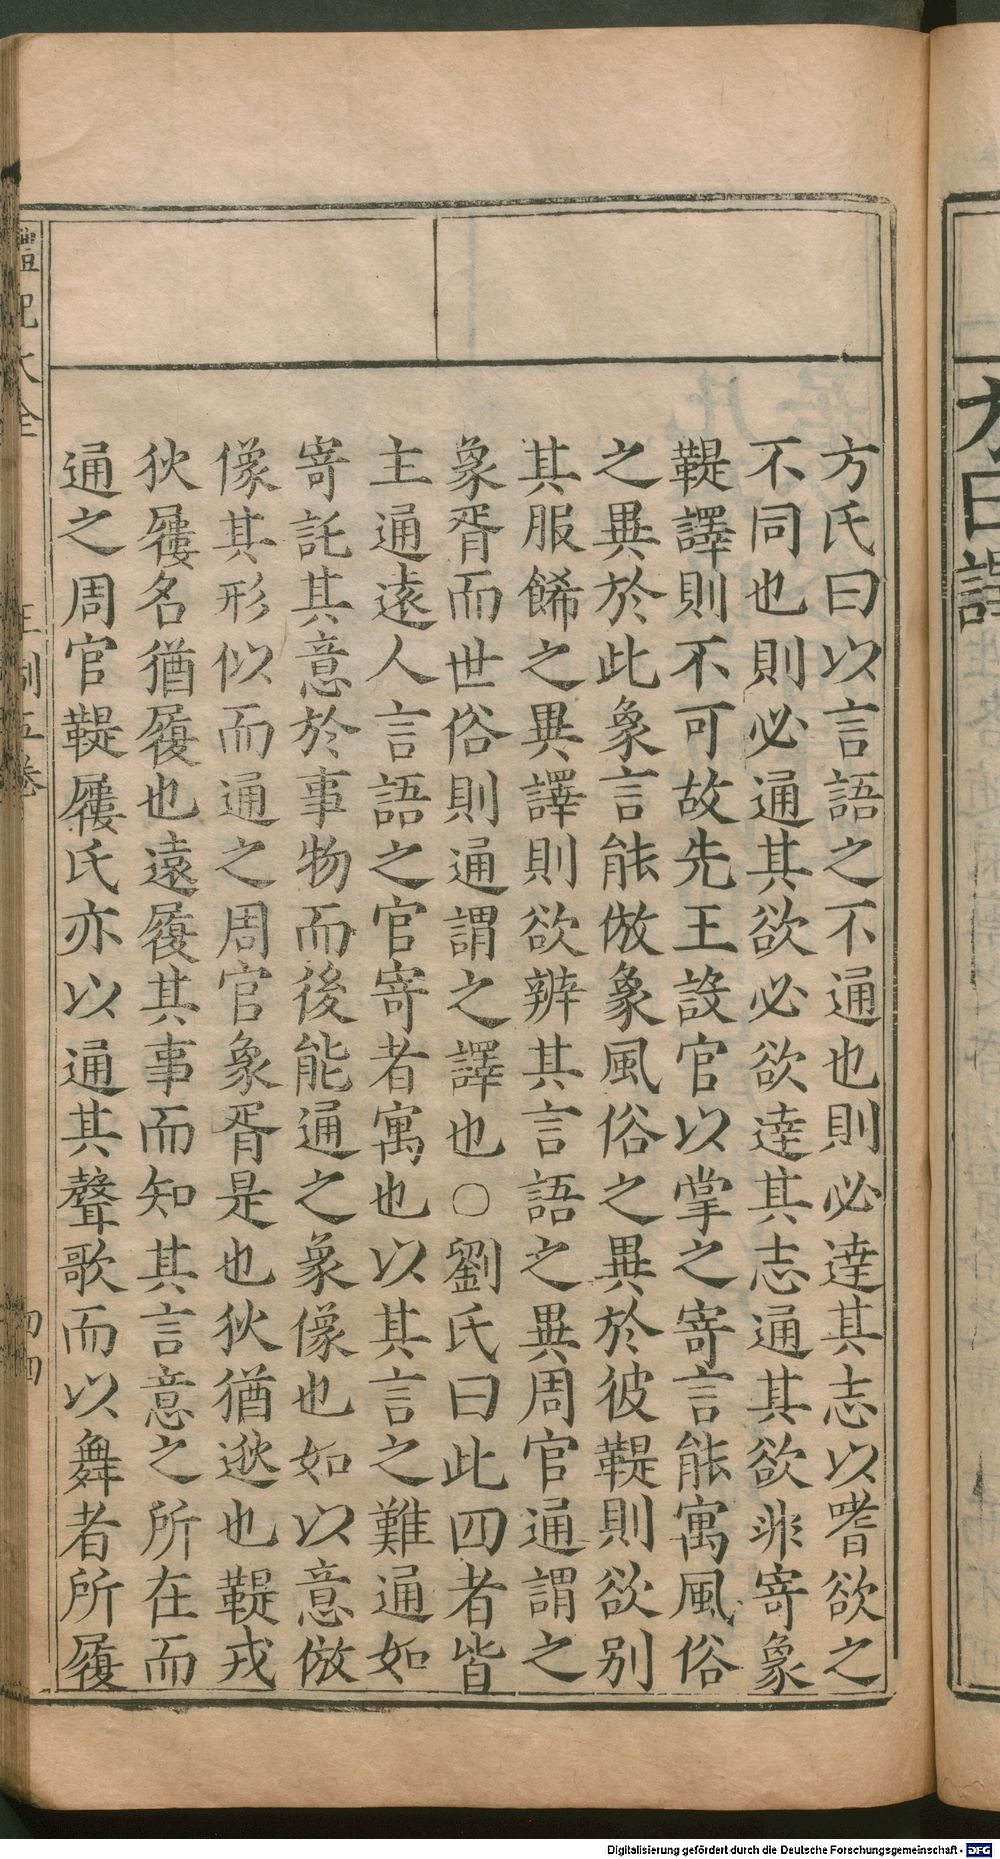 方氏曰以言語之不通也則必達其志以嗜欲之
不同也則必通其欲必欲達其志通其欲非寄象
鞮譯則不可故先王設官以掌之寄言能寓風俗
之異於此象言能倣象風俗之異於彼鞮則欲别
其服餙之異譯則欲辨其言語之異周官通謂之
象胥而世俗則通謂之譯也○劉氏曰此四者皆
主通遠人言語之官寄者寓也以其言之難通如
寄託其意於事物而後能通之象像也如以意倣
像其形似而通之周官象胥是也狄猶逖也鞮戎
狄屨名猶履也遠履其事而知其言意之所在而
通之周官鞮屨氏亦以通其聲歌而以舞者所履
禮記大全
王制五卷
Digitalisierung gefördert durch die Deutsche Forschungsgemeinschaft - DFG